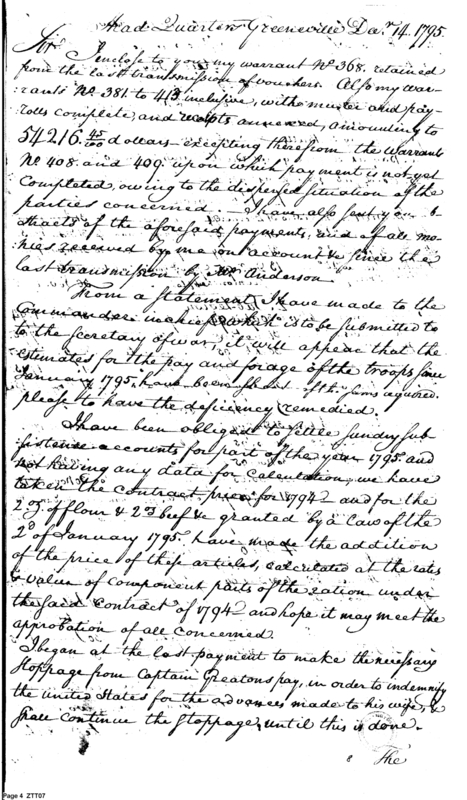 Head Quarters Greeneville Dec.r 14. 1795.
Sir,
I enclose to you my warrant No. 368. retained
from the last transmission of vouchers. Also my war-
rants No. 381. to 413 inclusive, with muster and pay-
rolls complete, and receipts annexed, amounting to
54216. 45/100 dollars – excepting therefrom the Warrants
No. 408. and 409. upon which payment is not yet
Completed, owing to the dispersed situation of the
parties concerned. – I have also sent you ab-
stracts of the aforesaid payments, and of all mo-
nies received by me on account &c since the
last transmission by Mr. Anderson.
From a statement I have made to the
Commander in chief, & which is to be submitted to
to the Secretary of war, it will appear that the
estimates for the pay and forage of the troops since
January 1795. have been short of the sums required.
please to have the deficiency remedied.
I have been obliged to settle sundry sub-
sistence accounts for part of the year 1795. and
not having any data for calculation, we have
taken the contract price for 1794 and for the
2 oz of flour & 2 oz beef &c granted by a law of the
2d of January 1795. have made the addition
of the price of these articles, calculated at the rates
& value of component parts of the ration under
the said contract of 1794 and hope it may meet the
approbation of all concerned.
I began at the last payment to make the necessary
stoppage from Captain Greatons pay, in order to indemnify
the United States for the advances made to his wife, &
shall continue the stoppage, until this is done.
The
Page 4 ZTT07